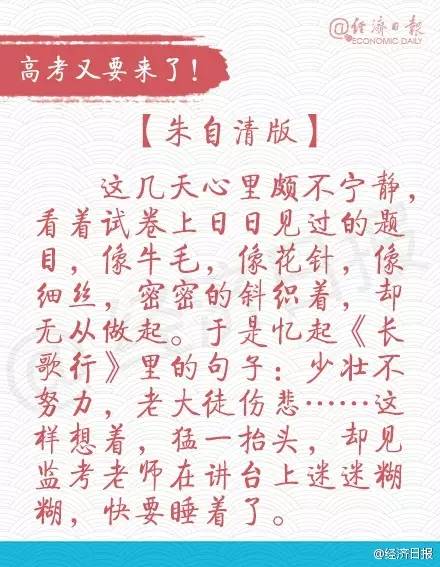 @经济日报
ECONOMIC DAILY
高考又要来了!
【朱自清版】
这几天心里颇不宁静,
看着试卷上日日见过的题
目,像牛毛,像花针,像
细丝,密密的斜织着,却
无从做起。于是忆起《长
歌行》里的句子:少壮不
努力,老大徒伤悲……这
样想着,猛一抬头,却见
监考老师在讲台上迷迷糊
糊,快要睡着了。
@经济日报
@经济日报